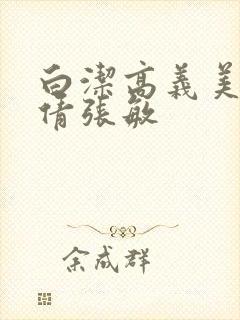 白潔高義美
倩張敏
余成群